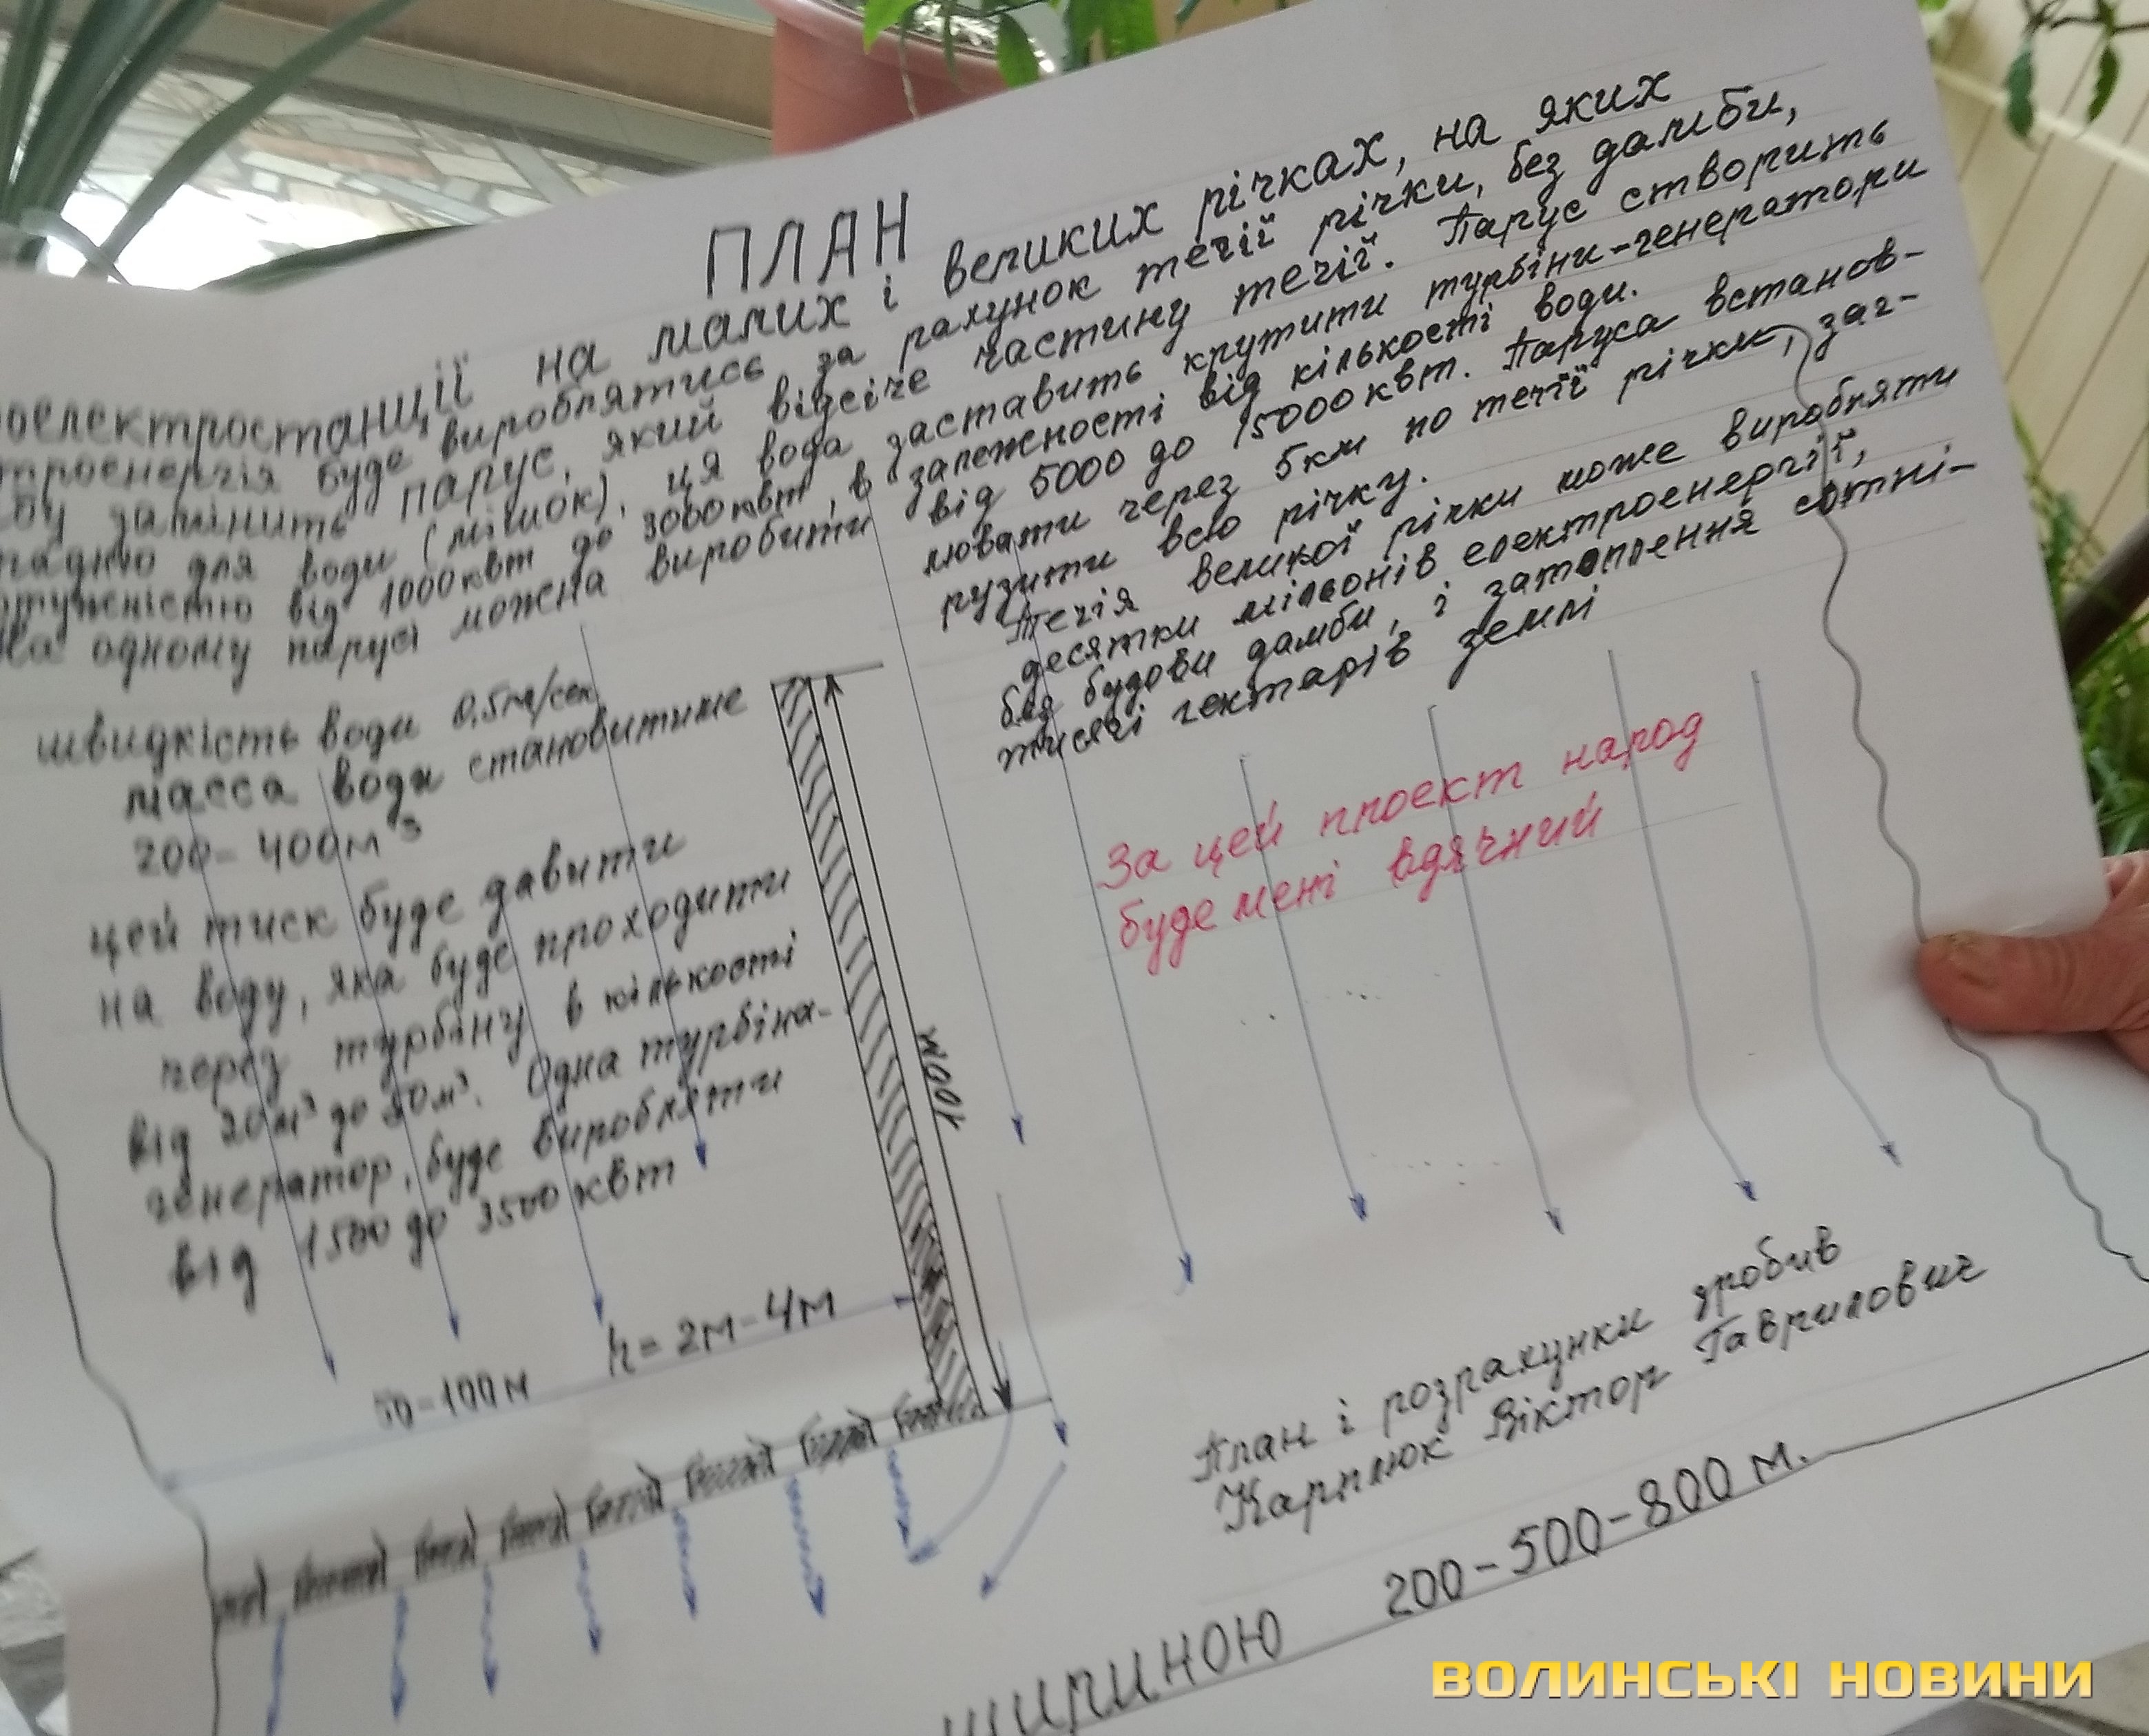 ПЛАН
роелектростанції на малих і великих річках, на яких
троенергія буде вироблятись за рахунок течії річки, без дамби,
бу замінить парус, який відсіче частину течії. Парус створить
падню для води (мішок), ця вода заставить крутити турбіни-генератори
отужністю від 1000квт до 3000квт, в залежності від кількості води.
На одному парусі можна виробити від 5000 до 15000 квт. Паруса встанов-
лювати через 5км по течії річки, заг-
рузити всю річку.
Течія великої річки може виробляти
десятки міліонів електроенергії,
без будови дамби, і затоплення сотні-
тисячі гектарів землі
швидкість води 0,5м/сек
масса води становитиме
200-400м³
цей тиск буде давити
на воду, яка буде проходити
через турбіну в кількості
від 20м³ до м³. Одна турбіна-
генератор, буде виробляти
від 1500 до 3500 квт
100м
За цей проект народ
буде мені вдячний
h=2м-4м
50-100м
План і розрахунки зробив
Карплюк Віктор Гаврилович
шириною 200-500-800 м.
ВОЛИНСЬКІ НОВИНИ